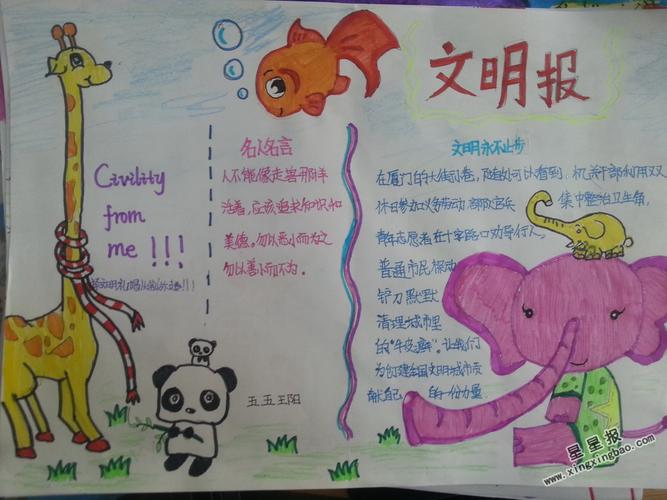 文明报
Civility
from
me!!!
名人名言
人不能像走兽那样
活着,应该追求知识和
美德。勿以恶小而为之
勿以善小而不为。
五五王阳
文明永不止步
在厦门的大街小巷,随处可以看到,机关干部利用双
休日参加义务劳动,部队官兵 集中整治卫生角,
青年志愿者在十字路口劝导行人,
普通市民挥动
铲刀默默
清理城市里
的“牛皮癣”。让我们
为创建全国文明城市贡
献自己 的一份力量
星星报
www.xingxingbao.com